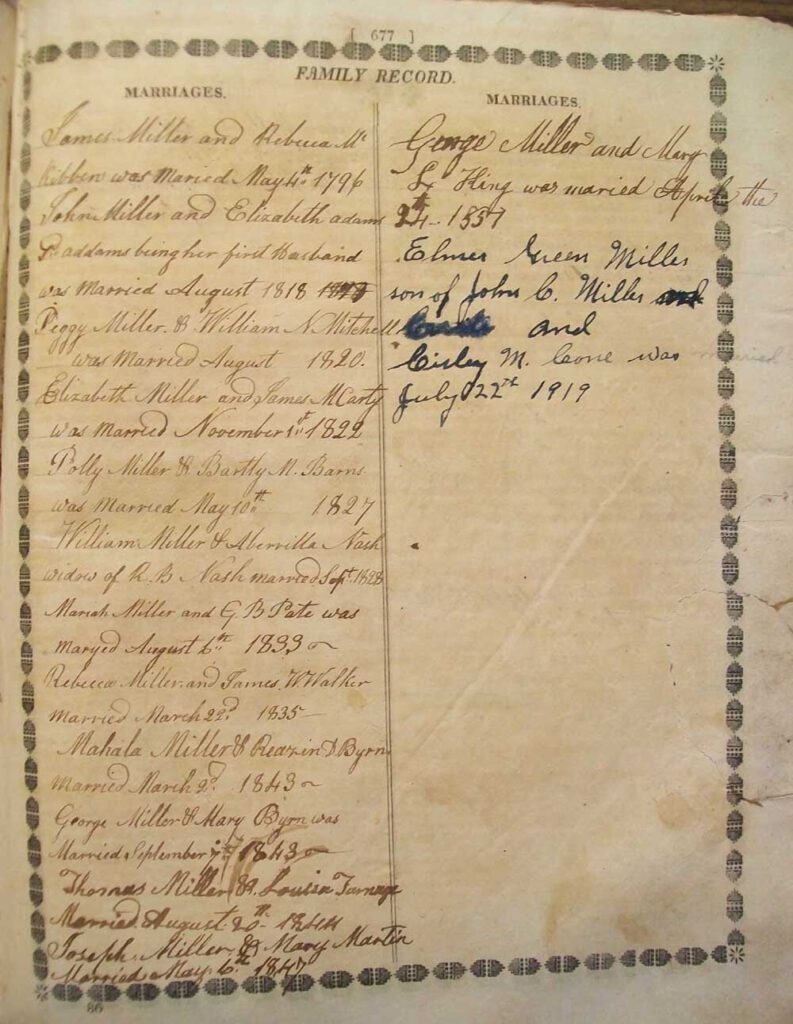 [ 677 ]
FAMILY RECORD.
MARRIAGES.
James Miller and Rebecca Mc
Kibben was Maried May 4th 1796
John Miller and Elizabeth adams
P. addams being her first Husband
was Married August 1818
Peggy Miller & William N. Mitchell
was Married August 1820.
Elizabeth Miller and James McCarty
was Married November 1st 1822
Polly Miller & Bartly M. Barns
was Married May 10th 1827
William Miller & Aberrilla Nash
widow of R. B Nash married Sept. 1828
Mariah Miller and G B Pate was
maryed August 6th 1833
Rebecca Miller and James W Walker
Married March 22d 1835
Mahala Miller & Reazin D Byrn
Married March 2d 1843
George Miller & Mary Byrn was
Married September 7th 1843
Thomas Miller & Louisa Turnage
Married August 20th 1844
Joseph Miller & Mary Martin
Married May 6th 1847
86
MARRIAGES.
George Miller and Mary
L King was maried April the
24th 1857
Elmer Green Miller
son of John C. Miller and
and
Cisley M. Cone was married
July 22nd 1919